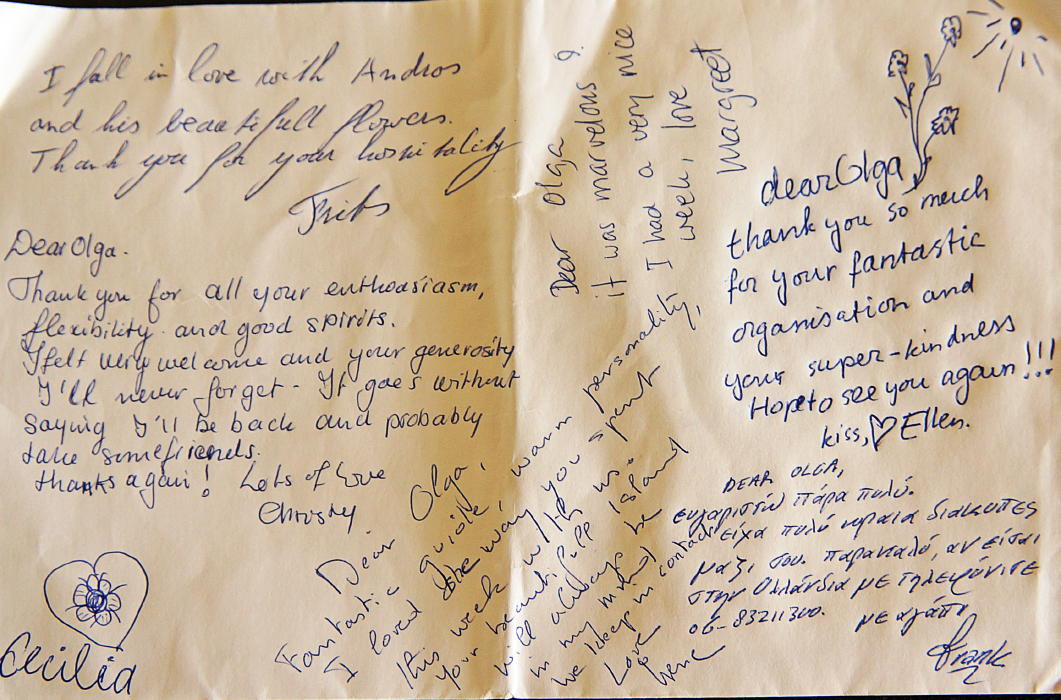 I fall in love with Andros
and his beautifull flowers.
Thank you for your hospitality
Frits
Dear Olga.
Thank you for all your enthousiasm,
flexibility and good spirits.
I felt very welcome and your generosity
I'll never forget - It goes without
saying I'll be back and probably
take some friends.
thanks again! Lots of love
Christy
Cecilia
Dear Olga,
Fantastic guide, warm personality,
I loved the way you spent
this week with us.
your beautifull island
will always be
in my mind
we keep in contact
Love
Dear Olga
it was marvelous
I had a very nice
week, love
Margreet
dear Olga
thank you so much
for your fantastic
organisation and
your super-kindness
Hope to see you again!!!
kiss, ♡ Ellen.
DEAR OLGA,
ευχαριστώ πάρα πολύ.
είχα πολύ ωραια διακοπες
μαζι σου. παρακαλώ, αν είσαι
στην Ολλάνδια με τηλεφώνισε
06-83211300.
με αγάπη
Frank